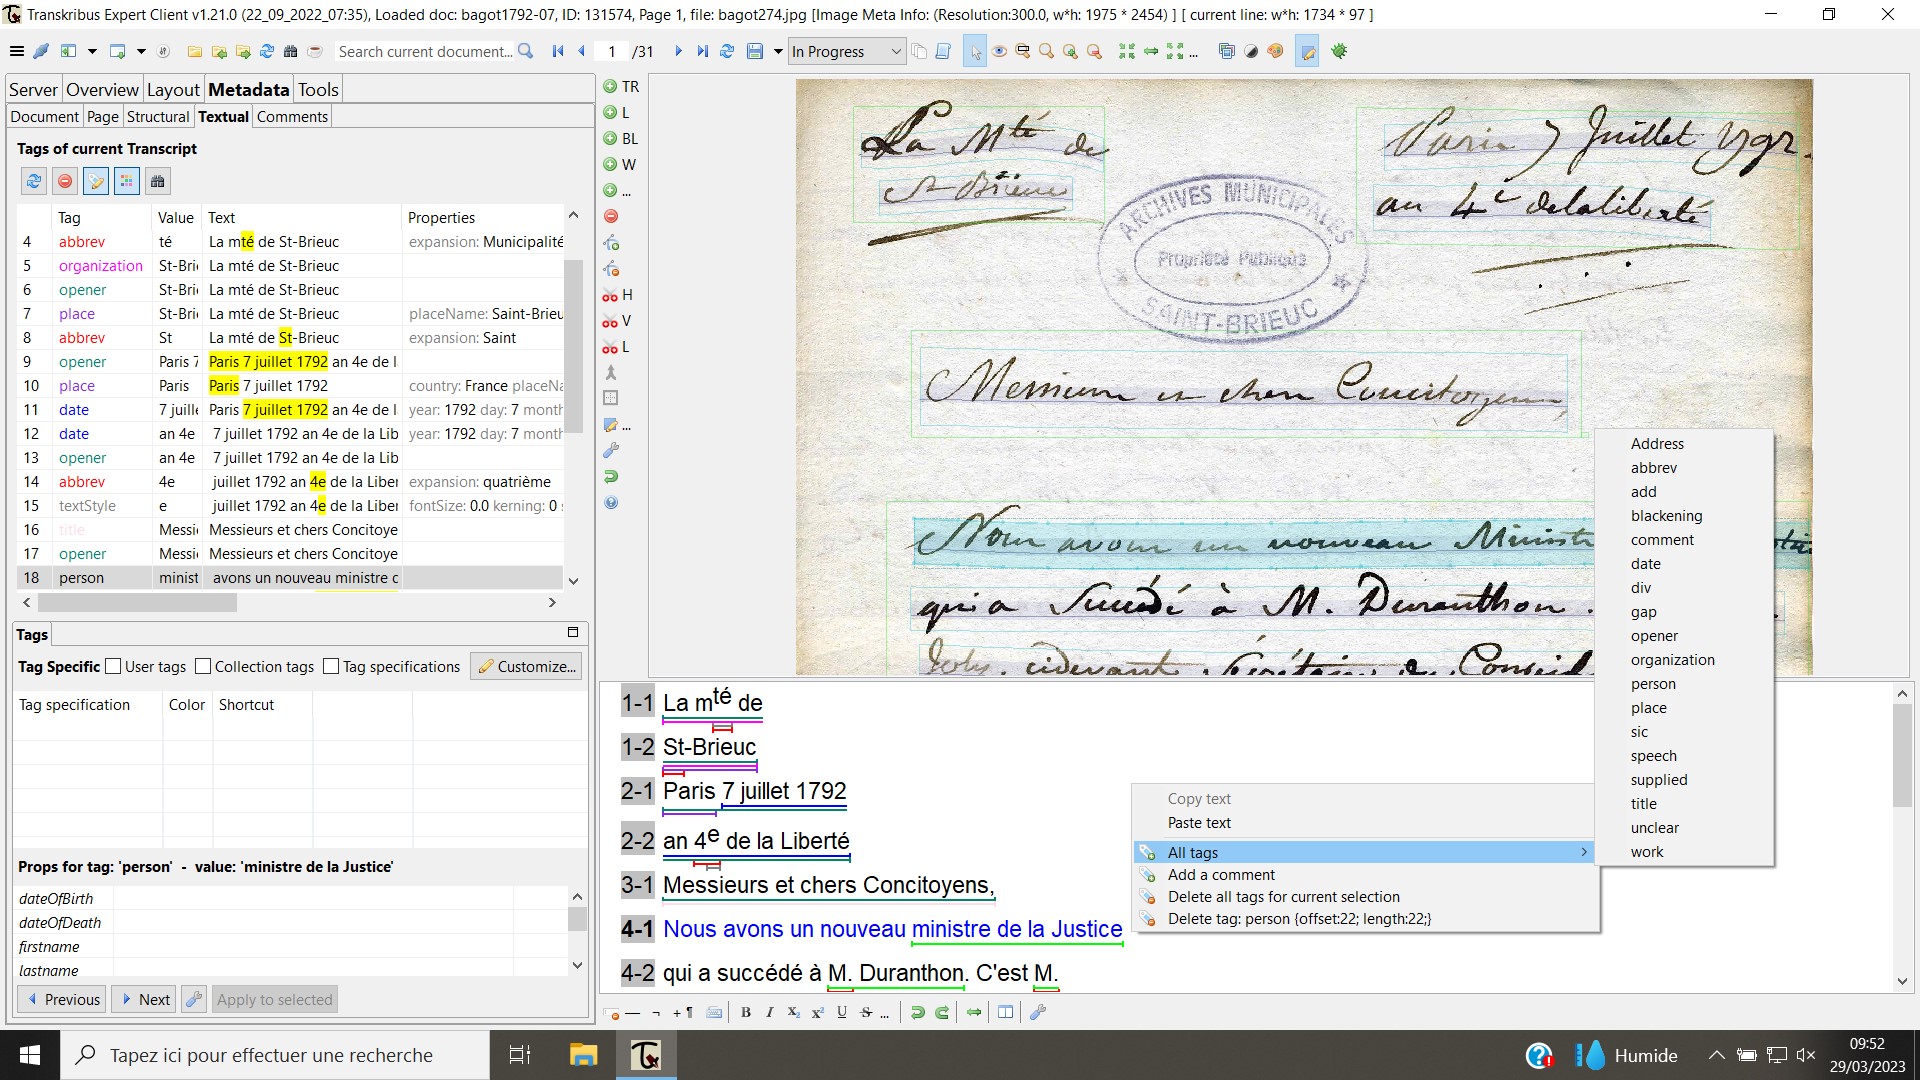 Transkribus Expert Client v1.21.0 (22_09_2022_07:35), Loaded doc: bagot1792-07, ID: 131574, Page 1, file: bagot274.jpg [Image Meta Info: (Resolution:300.0, w*h: 1975 * 2454) ] [ current line: w*h: 1734 * 97 ]
Search current document... 1 /31 In Progress ...
Server Overview Layout Metadata Tools
Document Page Structural Textual Comments
Tags of current Transcript
Tag Value Text Properties
4 abbrev té La mté de St-Brieuc expansion: Municipalité
5 organization St-Bri La mté de St-Brieuc
6 opener St-Bri La mté de St-Brieuc
7 place St-Bri La mté de St-Brieuc placeName: Saint-Brieu
8 abbrev St La mté de St-Brieuc expansion: Saint
9 opener Paris 7 Paris 7 juillet 1792 an 4e de l
10 place Paris Paris 7 juillet 1792 country: France placeNa
11 date 7 juille Paris 7 juillet 1792 an 4e de l year: 1792 day: 7 month
12 date an 4e 7 juillet 1792 an 4e de la Lib year: 1792 day: 7 month
13 opener an 4e 7 juillet 1792 an 4e de la Lib
14 abbrev 4e juillet 1792 an 4e de la Liber expansion: quatrième
15 textStyle e juillet 1792 an 4e de la Liber fontSize: 0.0 kerning: 0 s
16 title Messi Messieurs et chers Concitoye
17 opener Messi Messieurs et chers Concitoye
18 person minist avons un nouveau ministre c
Tags
Tag Specific User tags Collection tags Tag specifications Customize...
Tag specification Color Shortcut
Props for tag: 'person' - value: 'ministre de la Justice'
dateOfBirth
dateOfDeath
firstname
lastname
Previous Next Apply to selected
TR
L
BL
W
...
H
V
L
...
La Mté de
St Brieuc
Paris 7 Juillet 1792.
an 4e de la liberté
ARCHIVES MUNICIPALES
Propriété Publique
SAINT-BRIEUC
Messieurs et chers Concitoyens,
Nous avons un nouveau Ministr
qui a succédé à M. Duranthon.
Joly, cidevant Secrétaire du Conseil
Address
abbrev
add
blackening
comment
date
div
gap
opener
organization
person
place
sic
speech
supplied
title
unclear
work
1-1 La mté de
1-2 St-Brieuc
2-1 Paris 7 juillet 1792
2-2 an 4e de la Liberté
3-1 Messieurs et chers Concitoyens,
4-1 Nous avons un nouveau ministre de la Justice
4-2 qui a succédé à M. Duranthon. C'est M.
Copy text
Paste text
All tags
Add a comment
Delete all tags for current selection
Delete tag: person {offset:22; length:22;}
— ¬ + ¶ B I X₂ X² U S ...
Tapez ici pour effectuer une recherche
Humide
09:52
29/03/2023